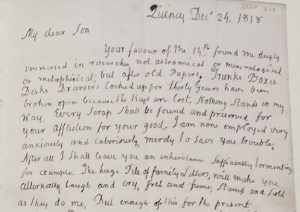 Quincy Decr 24. 1818
My dear Son
Your favour of the 14th found me deeply
immersed in researches not astronomical or mineralogical
or metaphisical, but after old Papers, Trunks Boxes
Desks Drawers locked up for thirty Years have been
broken open because the Keys are lost. Nothing stands in my
Way. Every Scrap shall be found and preserved for
your Affliction for your good, I am now employed very
anxiously and laboriously, merely to save you trouble,
After all I shall leave you an inheritance sufficiently tormenting,
for example. The huge Pile of family Letters, will make you
alternately laugh and cry, fret and fume, stamp and scold
as they do me. But enough of this for the present